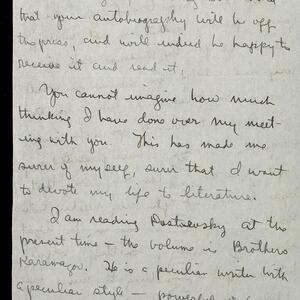 that your autobiography will be off
the press, and will indeed be happy to
receive it and read it.
You cannot imagine how much
thinking I have done over my meet-
ing with you. This has made me
surer of myself, surer that I want
to devote my life to literature.
I am reading Dostoevsky at the
present time – the volume is Brothers
Karamazov. He is a peculiar writer with
a peculiar style – powerful